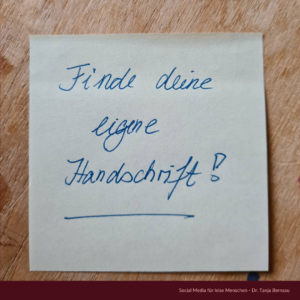 Finde deine
eigene
Handschrift!
Social Media für leise Menschen - Dr. Tanja Bernsau